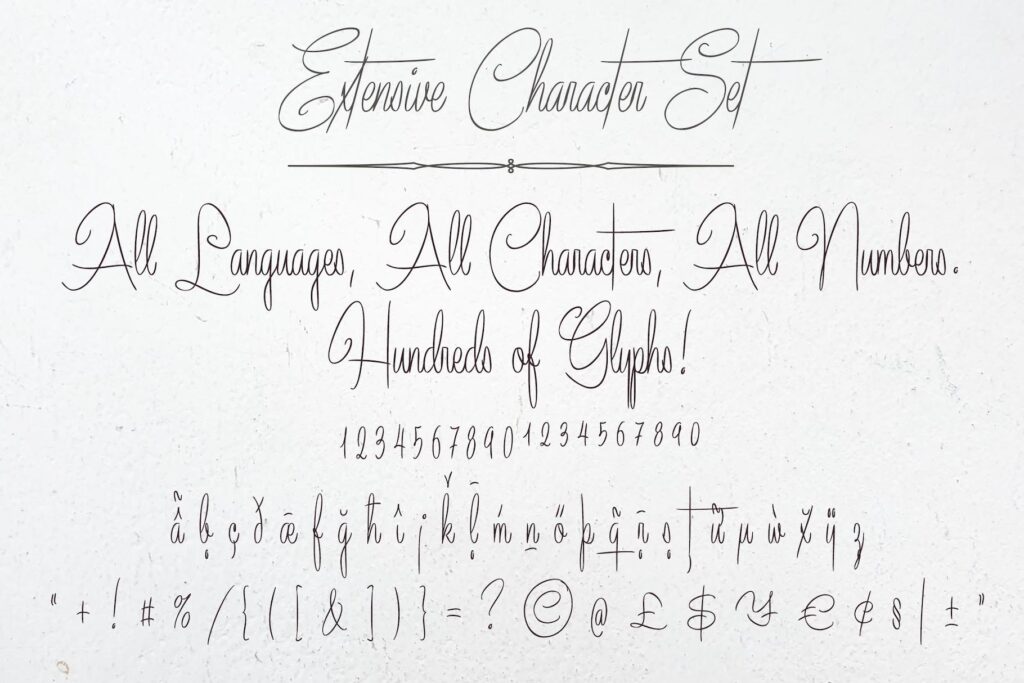 Extensive Character Set
All Languages, All Characters, All Numbers.
Hundreds of Glyphs!
1234567890 1234567890
ḅ ç ð ǣ f ğ ħ î ǩ ḿ ṉ ő þ ņ̃ ṣ μ ẁ ÿ ʒ
" + ! # % / { ( [ & ] ) } = ? © @ £ $ ¥ € ¢ § | ± "